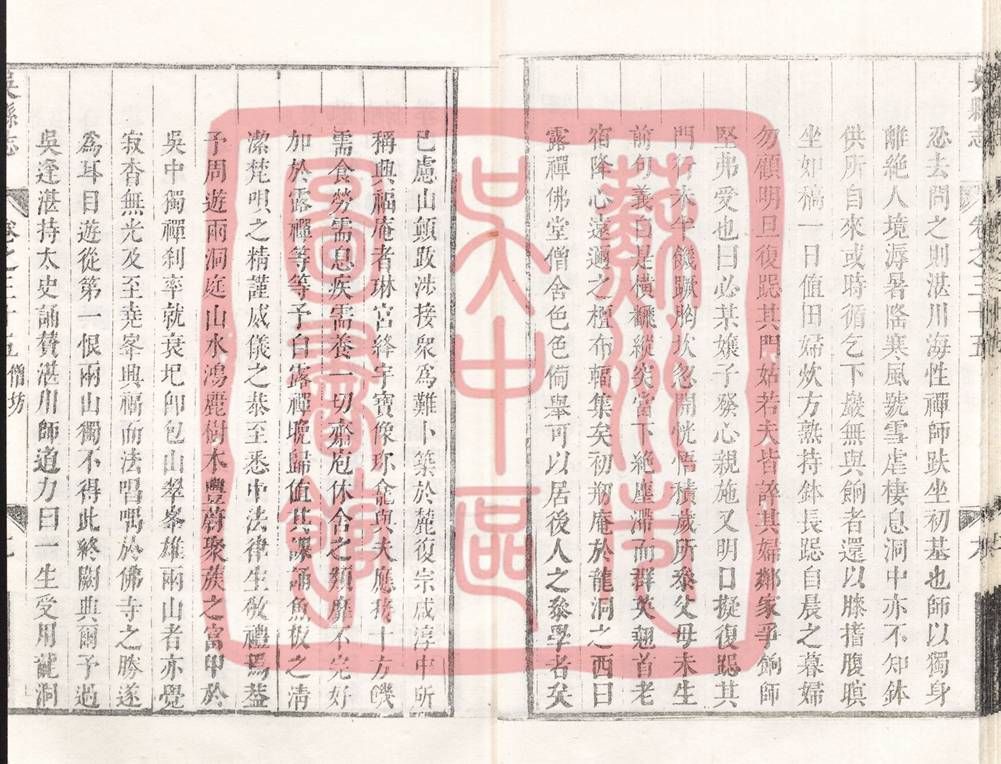 吳縣志
卷之三十五
忍去問之則湛川海性禪師趺坐初基也師以獨身
離絕人境溽暑隆寒風號雪虐棲息洞中亦不知鉢
供所自來或時循乞下巖無與餉者還以膝搘腹瞑
坐如稿一日值田婦炊方熟持鉢長跽自晨之暮婦
勿顧明旦復跽其門姑若夫皆誶其婦鄰家爭餉師
堅弗受也曰必某孃子發心親施又明日擬復跽其
門行未半饑蹶胸坎忽開恍悟積歲所參父母未生
前句義口是橫縱突當下絕塵滯而群英翹首老
宿降心遠邇之檀布輻集矣初剏庵於龍洞之西曰
露禪佛堂僧舍色色倘舉可以居後人之參學者矣
已慮山顛跋涉接眾為難卜築於麓復宗咸淳中所
稱興福庵者琳宮絳宇寶像珍龕與夫應接十方饑
需食勞需息疾需養一切齋庖休舍之類靡不完好
加於露禪等等予自露禪晚歸值其課誦魚板之清
潔梵唄之精謹威儀之恭至悉中法律生敬禮焉蓋
予周遊兩洞庭山水鴻龐樹木豐蔚聚蔟之富甲於
吳中獨禪刹率就衰圮卽包山翠峯雄兩山者亦覺
寂杳無光及至堯峯興福而法唱喁於佛寺之勝遂
為耳目遊從第一恨兩山獨不得此終闕典爾予過
吳逢湛持太史誦贊湛川師道力曰一生受用龍洞
吳縣志
卷之三十五 僧坊
蘇州市
吳中區
圖書館